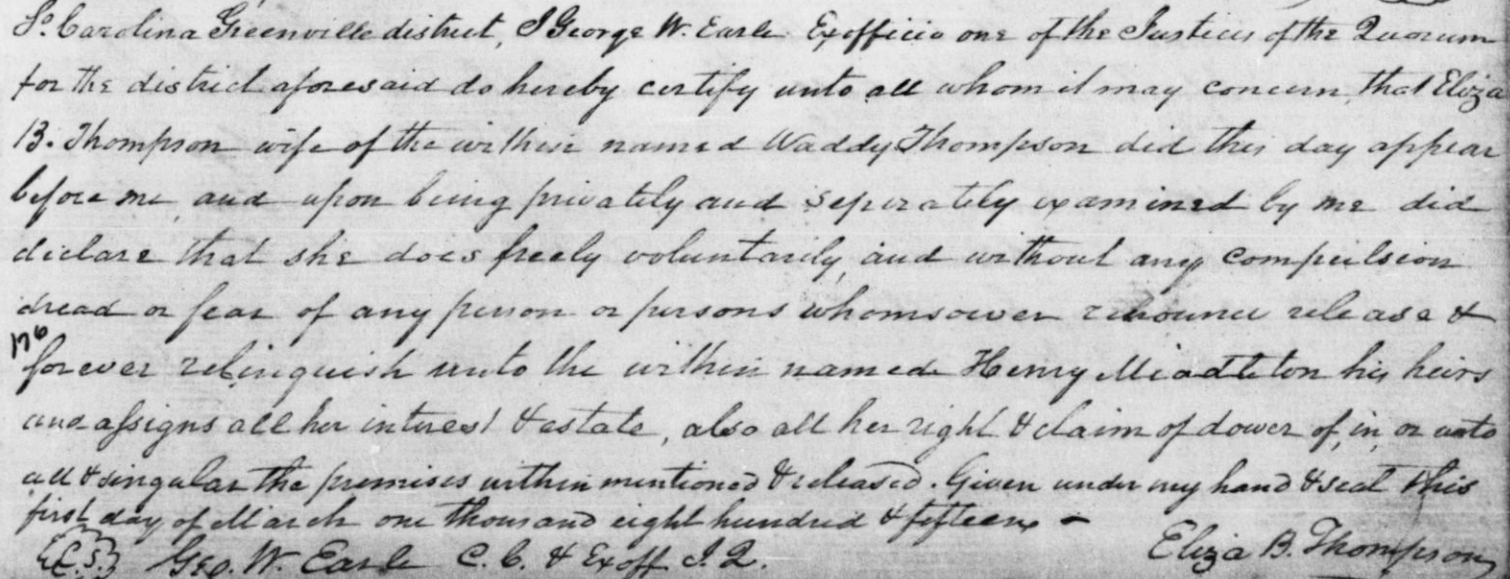 So. Carolina Greenville district, I George W. Earle Exofficio one of the Justices of the Quorum
for the district aforesaid do hereby certify unto all whom it may concern, that Eliza
B. Thompson wife of the within named Waddy Thompson did this day appear
before me, and upon being privately and seperately examined by me did
declare that she does freely voluntarily, and without any compulsion
dread or fear of any person or persons whomsoever renounce release &
176
forever relinquish unto the within named Henry Middleton his heirs
and assigns all her interest & estate, also all her right & claim of dower of, in, or unto
all & singular the premises within mentioned & released. Given under my hand & seal this
first day of March one thousand eight hundred & fifteen -
(L.S.) Geo. W. Earle C.C. & Exoff J.Q. Eliza B. Thompson